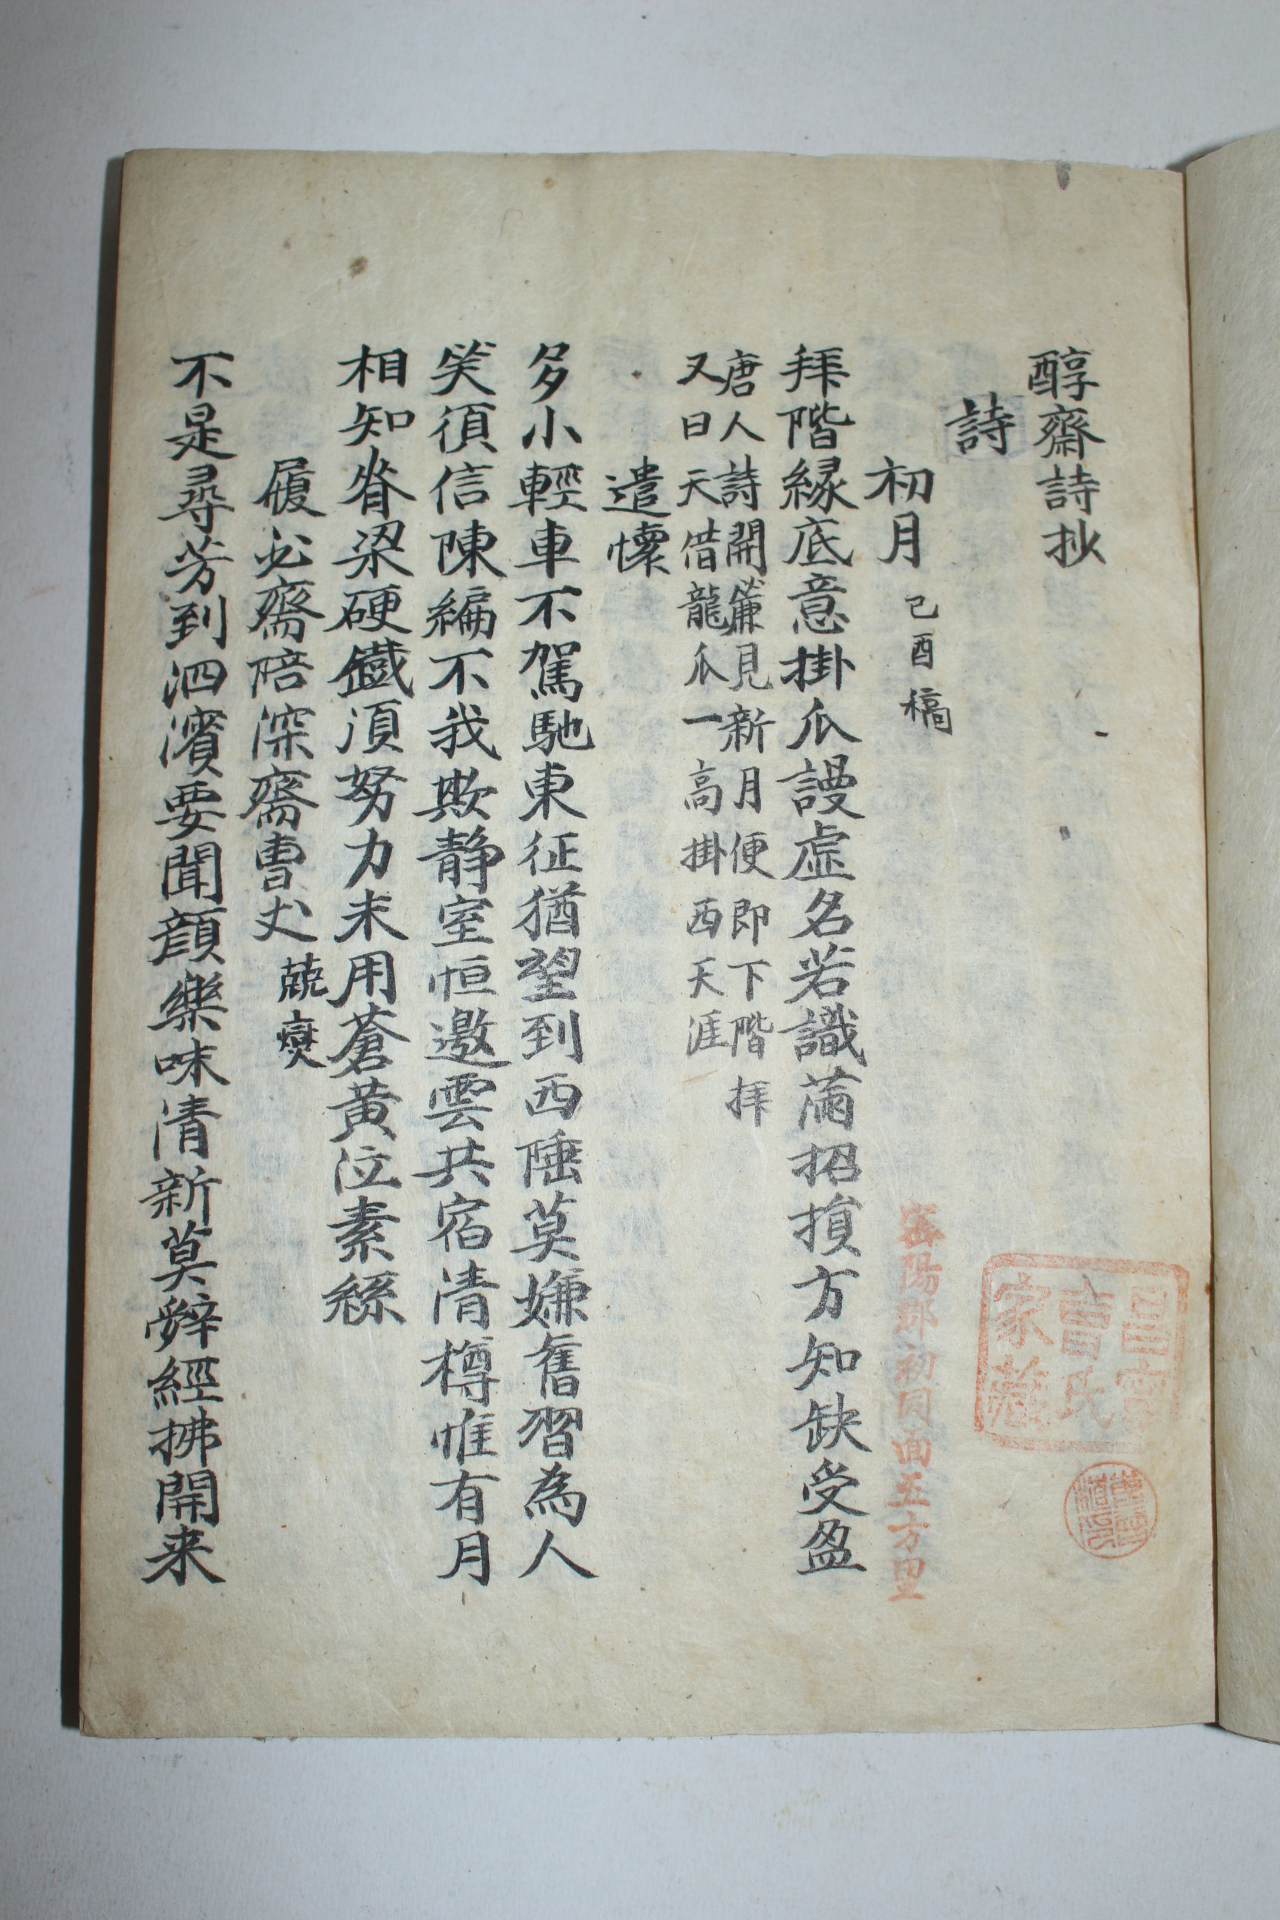 醇齋詩抄
詩
初月 己酉稿
拜階緣底意掛爪謾虛名若識滿招損方知缺受盈
唐人詩開簾見新月便即下階拜
又曰天借龍爪一高掛西天涯
遣懷
多小輕車不駕馳東征猶望到西陲莫嫌舊習為人
笑須信陳編不我欺靜室恒邀雲共宿清樽惟有月
相知脊梁硬鐵須努力未用蒼黃泣素絲
履必齋陪深齋曺丈 兢燮
不是尋芳到泗濱要聞顔樂味清新莫辭經拂開来
昌寧曺氏家藏
密陽郡初同面五方里